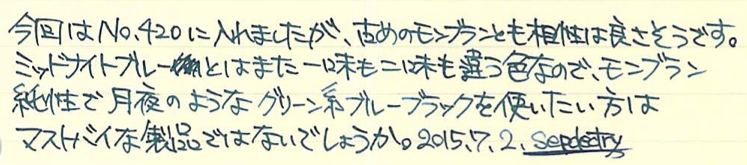 今回はNo.420に入れましたが、古めのモンブランとも相性は良さそうです。
ミッドナイトブルーとはまた一口味も二口味も違う色なので、モンブラン
純性で月夜のようなグリーン系ブルーブラックを使いたい方は
マストバイな製品ではないでしょうか。2015.7.2.